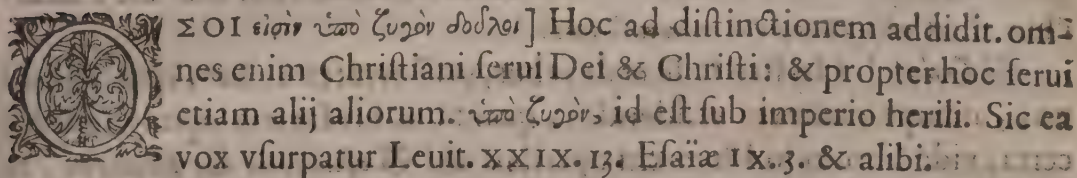 ΟΣΟΙ εἰσὶν ὑπὸ ζυγὸν δοῦλοι] Hoc ad distinctionem addidit. om-
nes enim Christiani serui Dei & Christi: & propter hoc serui
etiam alij aliorum. ὑπὸ ζυγὸν, id est sub imperio herili. Sic ea
vox vsurpatur Leuit. XXIX. 13. Esaïæ IX. 3. & alibi.